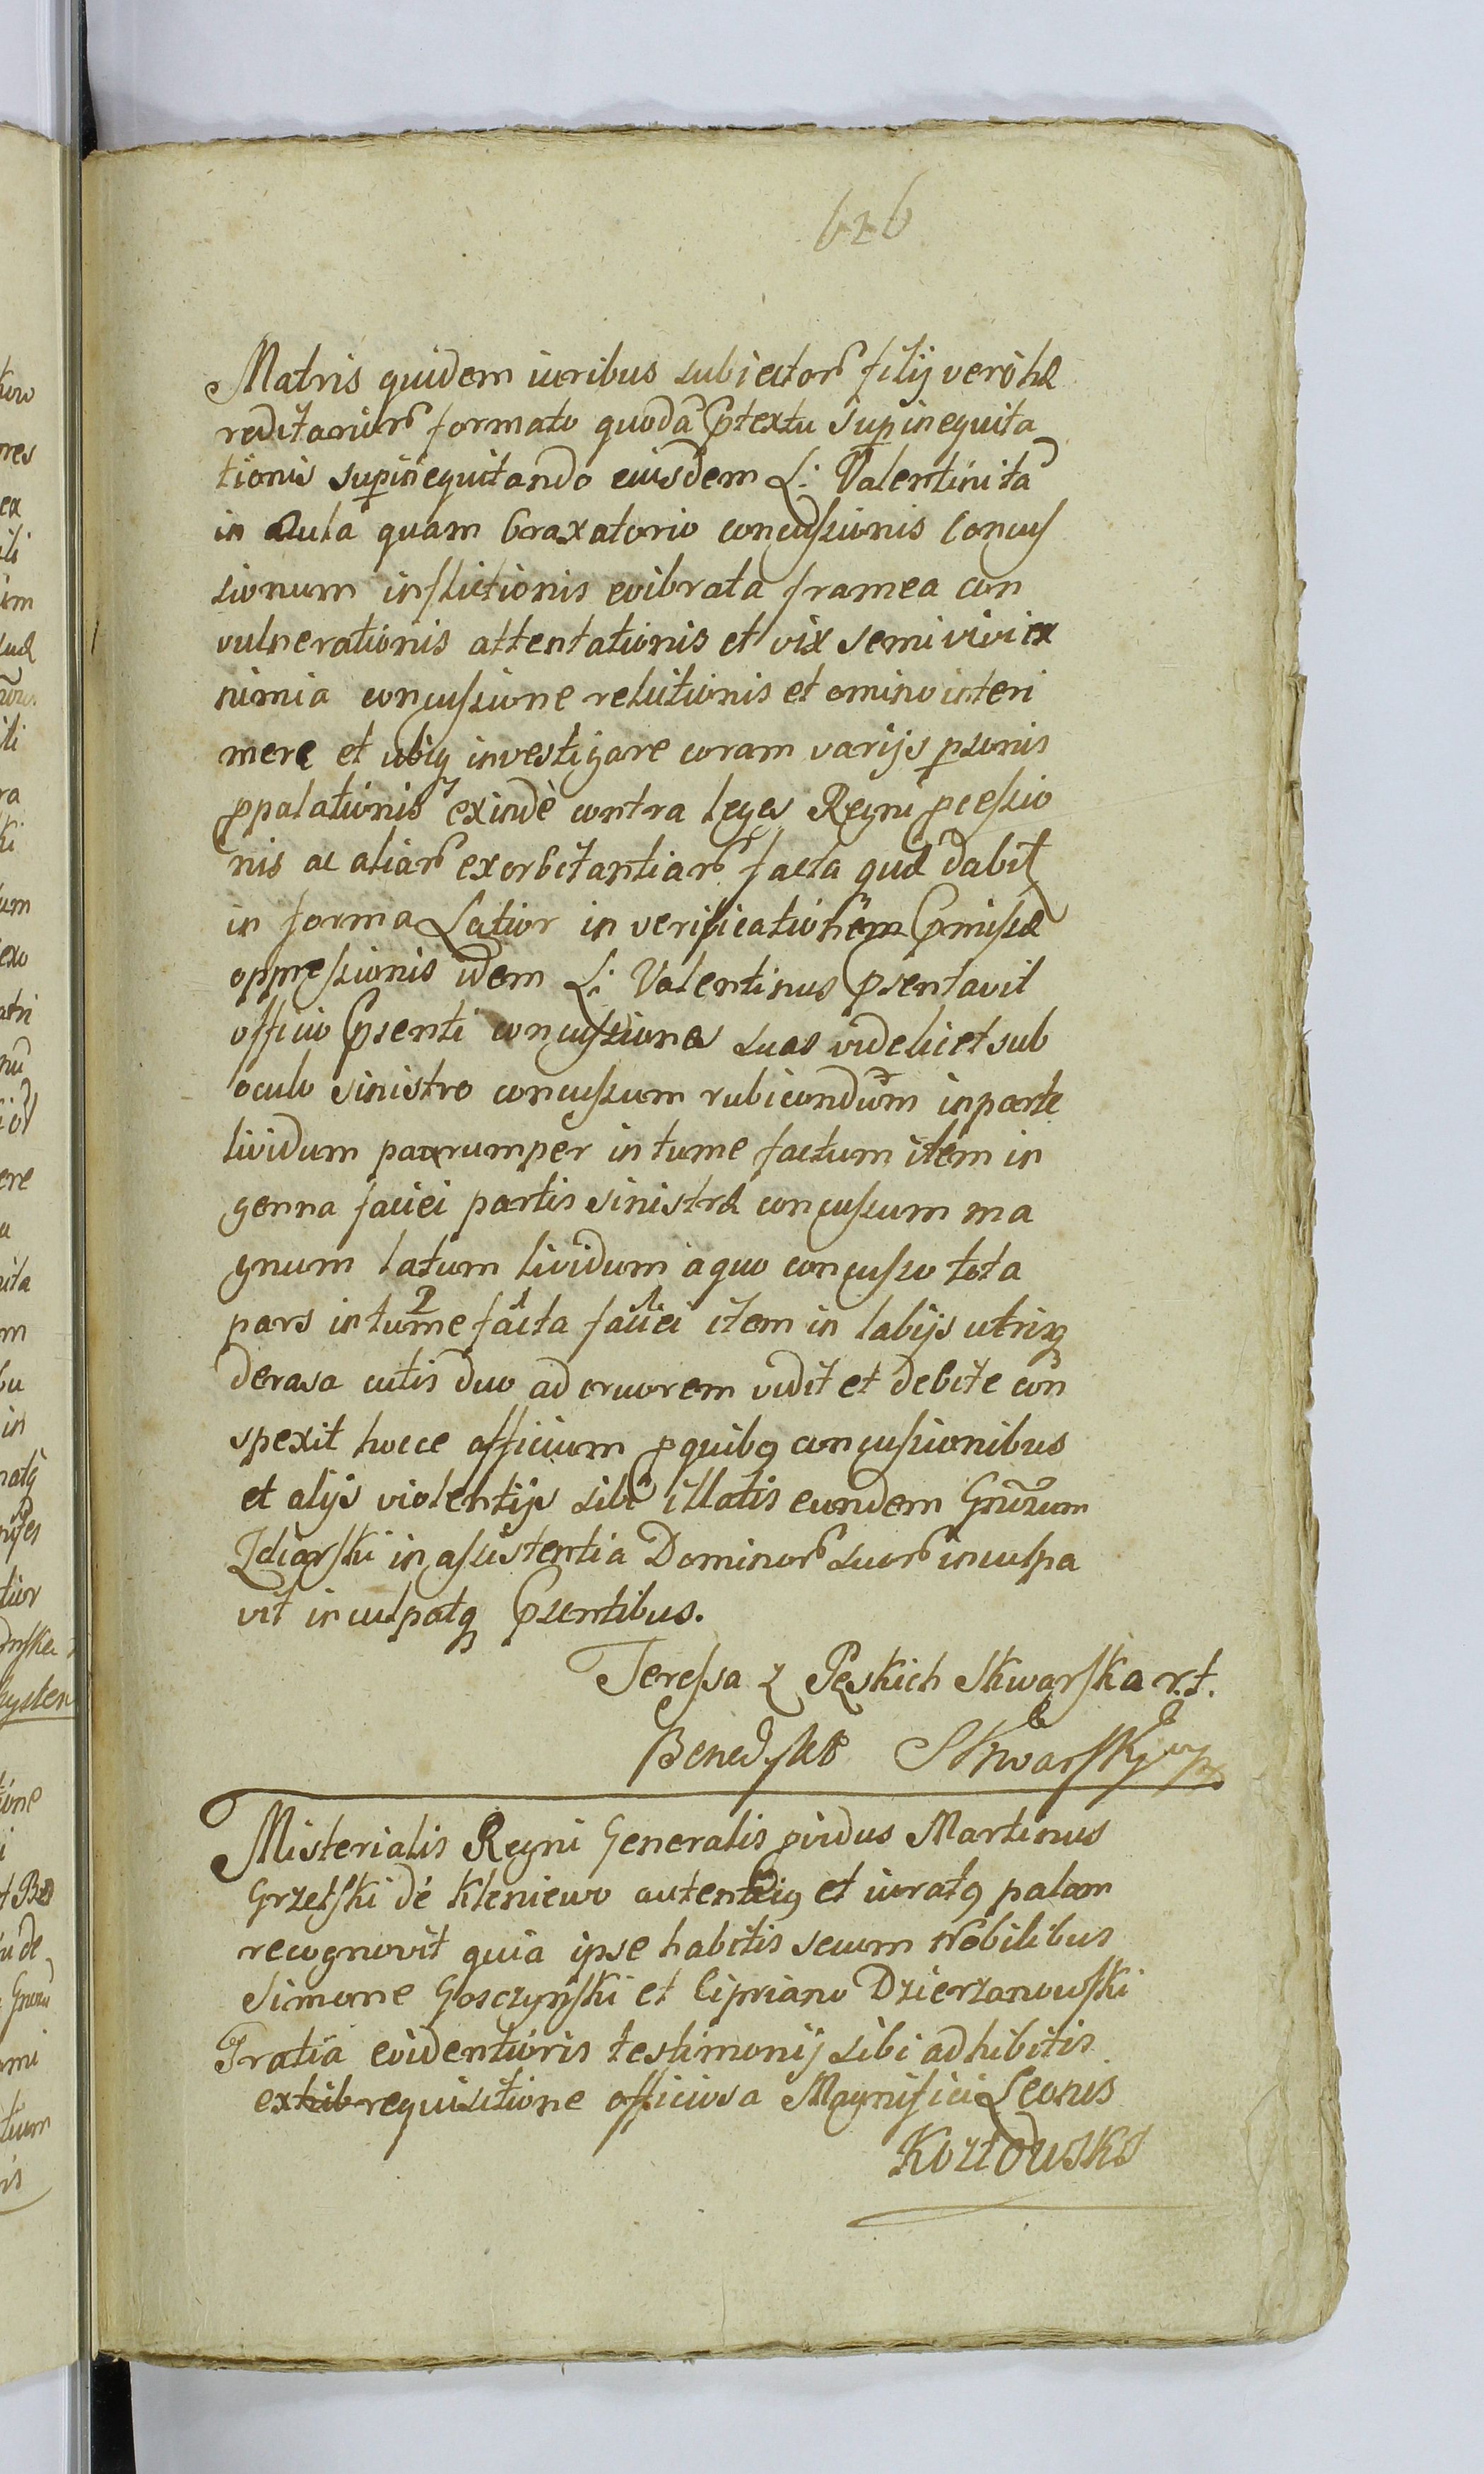 626
Matris quidem iuribus subiector͂ filij vero hæ
reditarior͂ formato quoda͂ p̃textu supinequita
tionis supinequitando eiusdem L: Valentini ta͂
in aula quam braxatorio concussionis concus
sionum inflictionis evibrata framea con
vulnerationis attentationis et vix semivivi ex
nimia concussione relictionis et omino interi
mere et ubiq investigare coram varijs psonis
ppalationis exindè contra leges Regni pcessio
nis ac aliar͂ exorbitantiar͂ facta quæ dabit
in forma Latior in verificationem p̃missæ
oppressionis idem L: Valentinus p̃sentavit
officio p̃senti concussiones suas videlicet sub
oculo sinistro concussum rubicondum in parte
lividum parumper intumefactum item in
genna faciei partis sinistræ concussum ma
gnum latum lividum a quo concusso tota
pars intumefacta faciei item in labijs utrisq
derasa cutis duo ad cruorem vidit et debite con
spexit hocce officium p quibq concussionibus
et alijs violentijs sibi illatis eundem Gnrosum
Zdiarski in assistentia Dominor͂ suor͂ inculpa
vit inculpatq p̃sentibus.
Teressa z Pęskich Skwarska r.t.
Benedykt Skwarsky mp
Misterialis Regni Generalis pvidus Martinus
Grzelski de Kleniewo autenticq et iuratq palam
recognovit quia ipse habitis secum Nobilibus
Simone Gosczynski et Cipriano Dzierzanowski
Gratia evidentioris testimonij sibi adhibitis
exhib requisitione officiosa Magnifici Leonis
Kozłowski